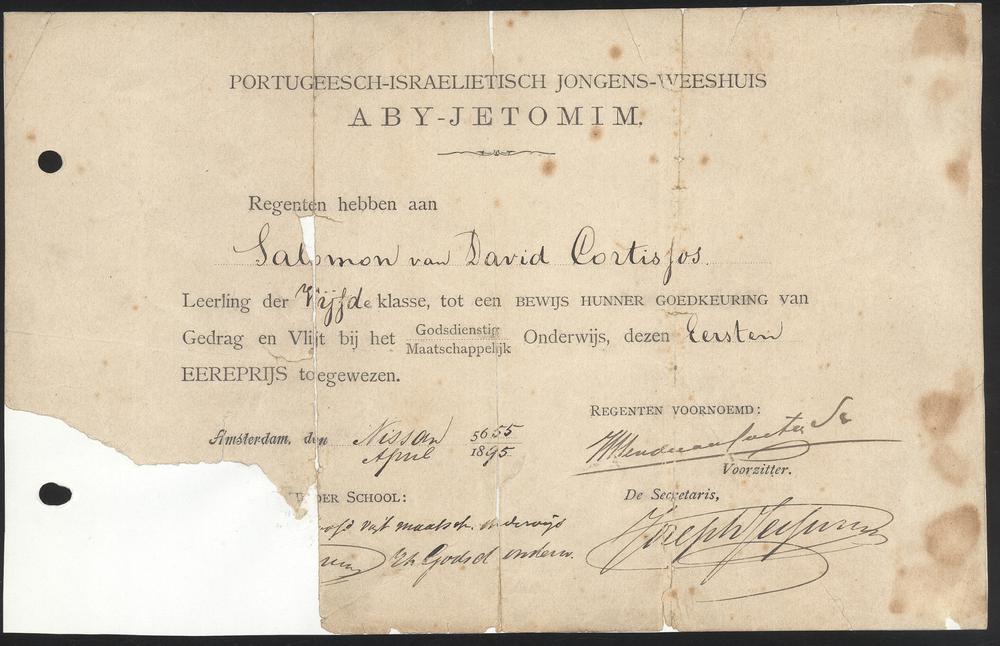 PORTUGEESCH-ISRAELIETISCH JONGENS-WEESHUIS
ABY-JETOMIM.
Regenten hebben aan
Salomon van David Cortissos.
Leerling der Vijfde klasse, tot een BEWIJS HUNNER GOEDKEURING van
Gedrag en Vlijt bij het Godsdienstig Maatschappelijk Onderwijs, dezen Eersten
EEREPRIJS toegewezen.
REGENTEN VOORNOEMD:
Amsterdam, den Nissan 5655
April 1895.
Voorzitter.
DER SCHOOL:
De Secretaris,
maatsch. onderwijs
Joseph
Godsd onderw.